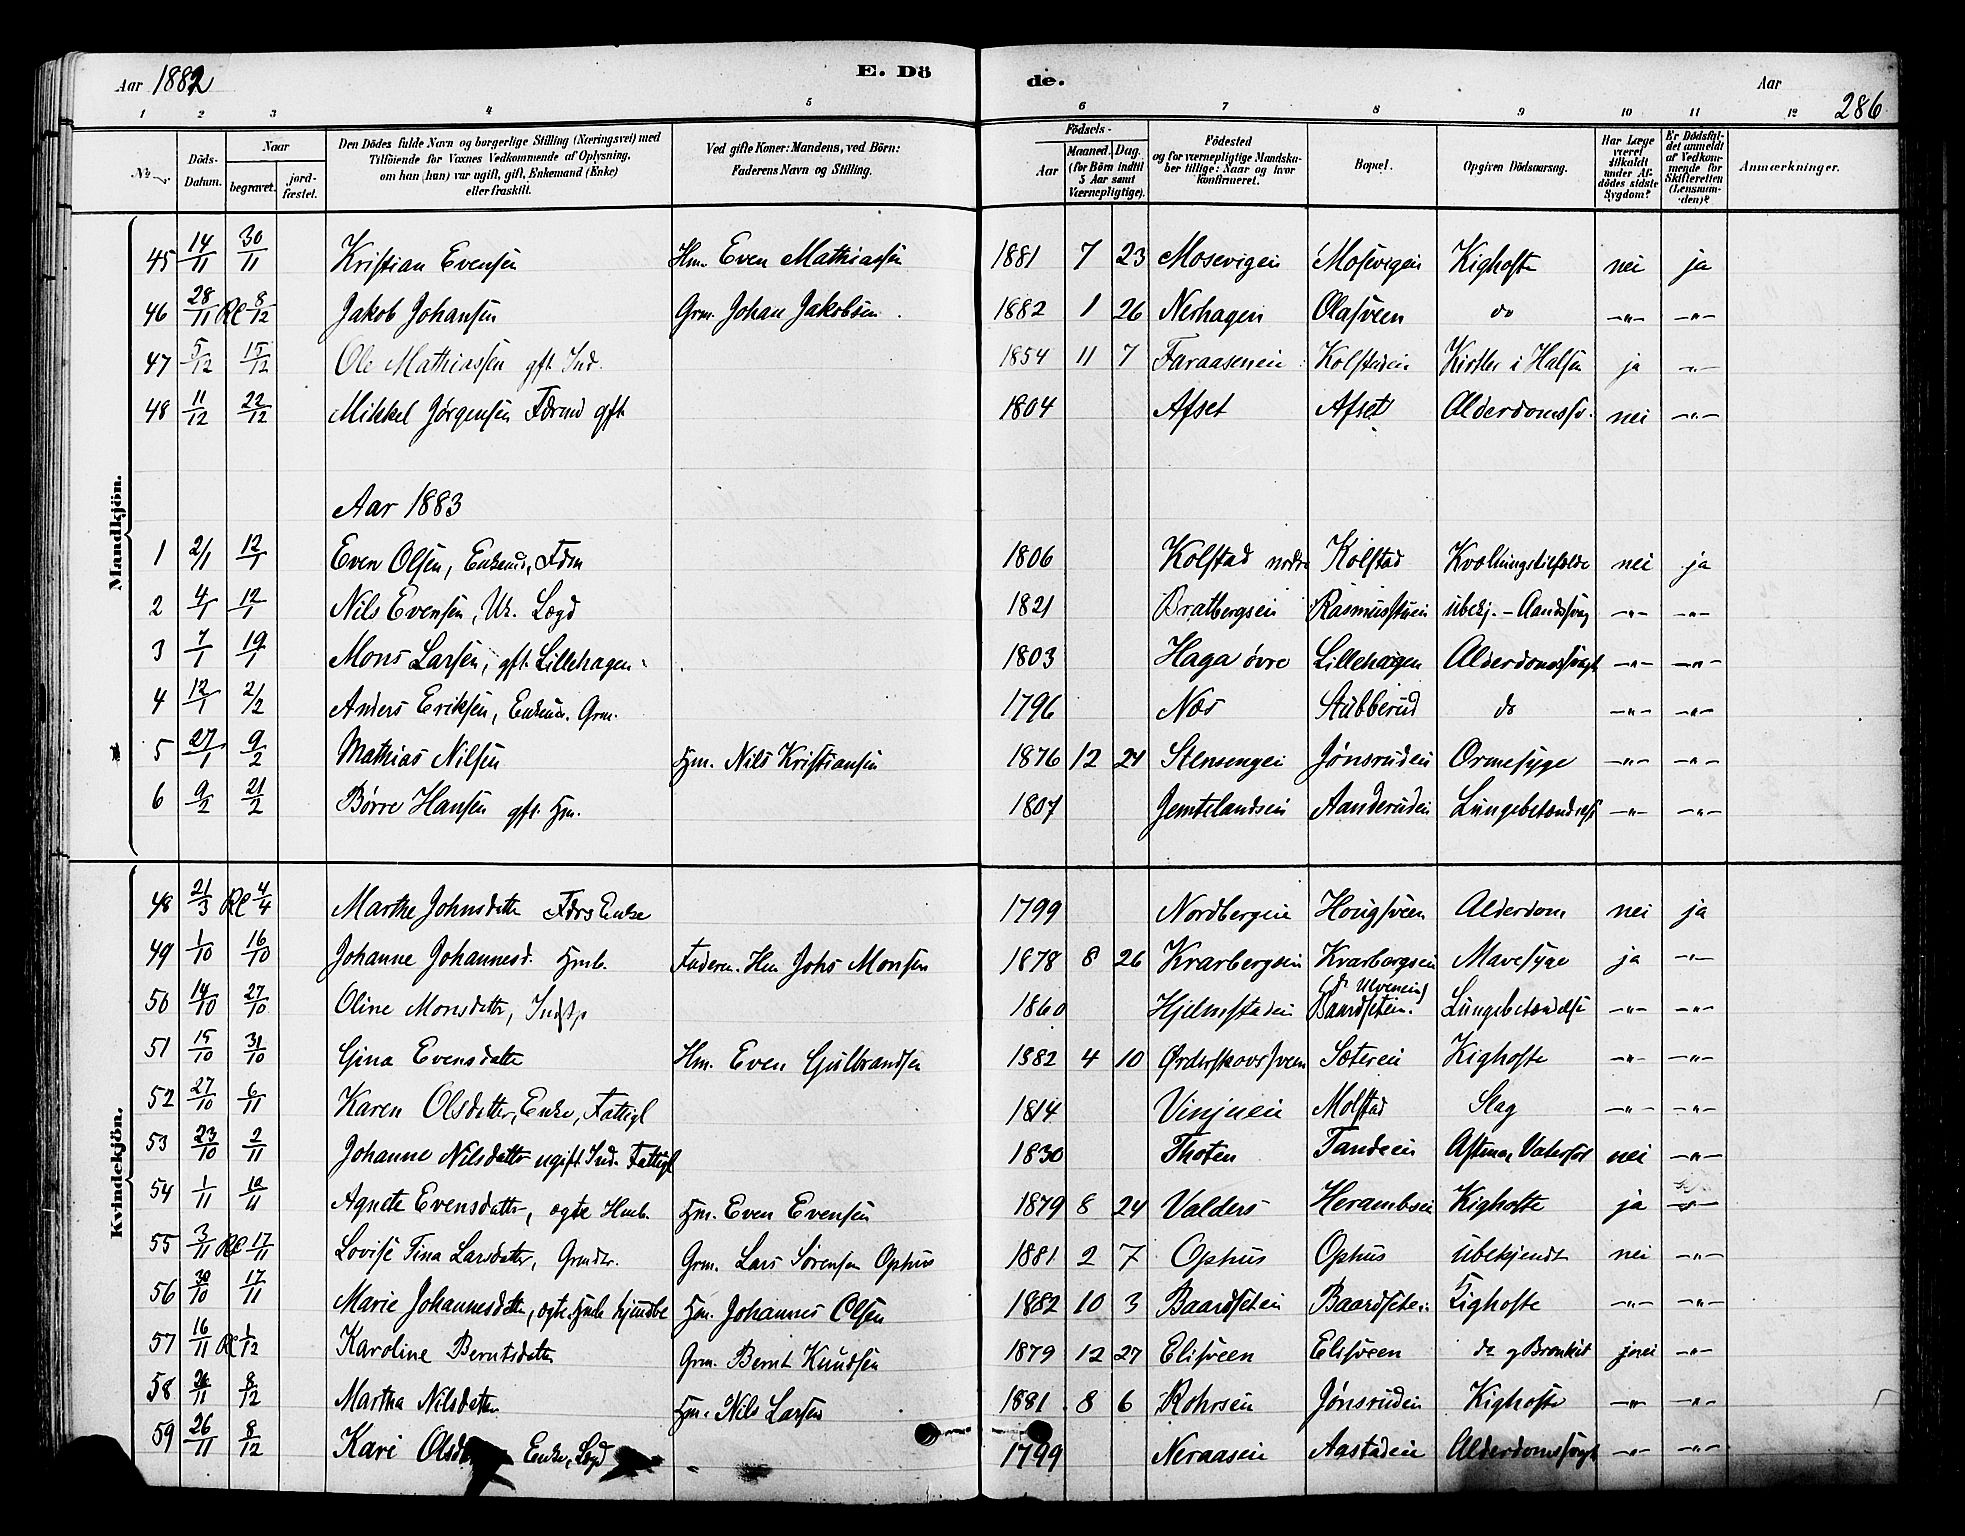 Aar 1882 E. Dö de. Aar 286
1 2 3 4 5 6 7 8 9 10 11 12
No Döds-Datum. Naar begravet. jord-fæstet. Den Dödes fulde Navn og borgerlige Stilling (Næringsvei) med Tilföiende for Voxnes Vedkommende af Oplysning, om han (hun) var ugift, gift, Enkemand (Enke) eller fraskilt. Ved gifte Koner: Mandens, ved Börn: Faderens Navn og Stilling. Födsels- Aar Maaned. Dag. (for Börn indtil 5 Aar samt Værnepligtige). Födested og for værnepligtige Mandskaber tillige: Naar og hvor konfirmeret. Bopæl. Opgiven Dödsaarsag. Har Læge været tilkaldt under Afdödes sidste Sygdom? Er Dödsfaldet anmeldt af Vedkommende for Skifteretten (Lensmanden)? Anmærkninger.
Mandkjön.
45 14/11 30/11 Kristian Evensen Hm. Even Mathiassen 1881 7 23 Mosevigen Mosevigen Kighoste nei ja
46 28/11 Rl 8/12 Jakob Johansen Grm. Johan Jakobsen 1882 1 26 Nerhagen Olasveen do -"- -"-
47 5/12 15/12 Ole Mathiassen gft. Ind. 1854 11 7 Faraaseneie Kolstadeie Kirtler i Halsen ja -"-
48 11/12 22/12 Mikkel Jørgensen Fdrmd gft 1804 Afset Afset Alderdomssv. nei -"-
Aar 1883
1 2/1 12/1 Even Olsen, Enkemd, Fdm 1806 Kolstad nedre Kolstad Kvælningstilfælde nei ja
2 4/1 12/1 Nils Evensen, Uk. Lægd 1821 Bratbergseie Rasmusstuen ubekj. - Aandssvag -"- -"-
3 7/1 19/1 Mons Larsen, gft. Lillehagen 1803 Haga øvre Lillehagen Alderdomssvagh -"- -"-
4 12/1 2/2 Anders Eriksen, Enkem. Grm. 1796 Næs Stubberud do -"- -"-
5 27/1 9/2 Mathias Nilsen Hm. Nils Kristiansen 1876 12 24 Stensengei Jønsrudeie Ormesyge -"- -"-
6 9/2 21/2 Børre Hansen gft. Hm. 1807 Jemtelandseie Aanderudeie Lungebetændelse -"- -"-
Kvindekjön.
48 21/3 Rl 4/4 Marthe Johnsdatter Fdrs Enke 1799 Nordbergeie Hougsveen Alderdom nei ja
49 1/10 16/10 Johanne Johannesd. Hmb. Faderen. Hm Johs Monsen 1878 8 26 Kvarbergseie Kvarbergseie Mavesyge ja -"-
50 14/10 27/10 Oline Monsdatter, Indstp 1860 Hjelmstadeie (fr Ulveneie) Baardseteie. Lungebetændelse -"- -"-
51 15/10 31/10 Gina Evensdatter Hm. Even Gulbrandsen 1882 4 10 Ørderskovssveen Sætereie Kighoste -"- -"-
52 27/10 6/11 Karen Olsdatter, Enke, Fattigl 1814 Vinjueie Molstad Slag -"- -"-
53 23/10 2/11 Johanne Nilsdatter ugift Ind. Fattigl 1830 Thoten Tandeeie Astma, Vatersot nei -"-
54 1/11 10/11 Agnete Evensdatter, ægte Hmb. Hm. Even Evensen 1879 8 24 Valders Herambseie Kighoste ja -"-
55 3/11 Rl 17/11 Lovise Tina Larsdatter, Grmdtr. Grm. Lars Sørensen Ophus 1881 2 7 Ophus Ophus ubekjendt nei -"-
56 30/10 17/11 Marie Johannesdatter, ægte Hmb hjemdbt Hm. Johannes Olsen 1882 10 3 Baardseteie Baardseteie Kighoste -"- -"-
57 16/11 Rl 1/12 Karoline Berntsdatter Grm. Bernt Knudsen 1879 12 27 Elisveen Elisveen do og Bronkit nei -"-
58 26/11 8/12 Martha Nilsdatter Hm. Nils Larsen 1881 8 6 Rohrseie Jønsrudeie Kighoste -"- -"-
59 26/11 8/12 Kari Enke, Lægd 1799 Neraaseie Aastadeie Alderdomssvagh -"- -"-